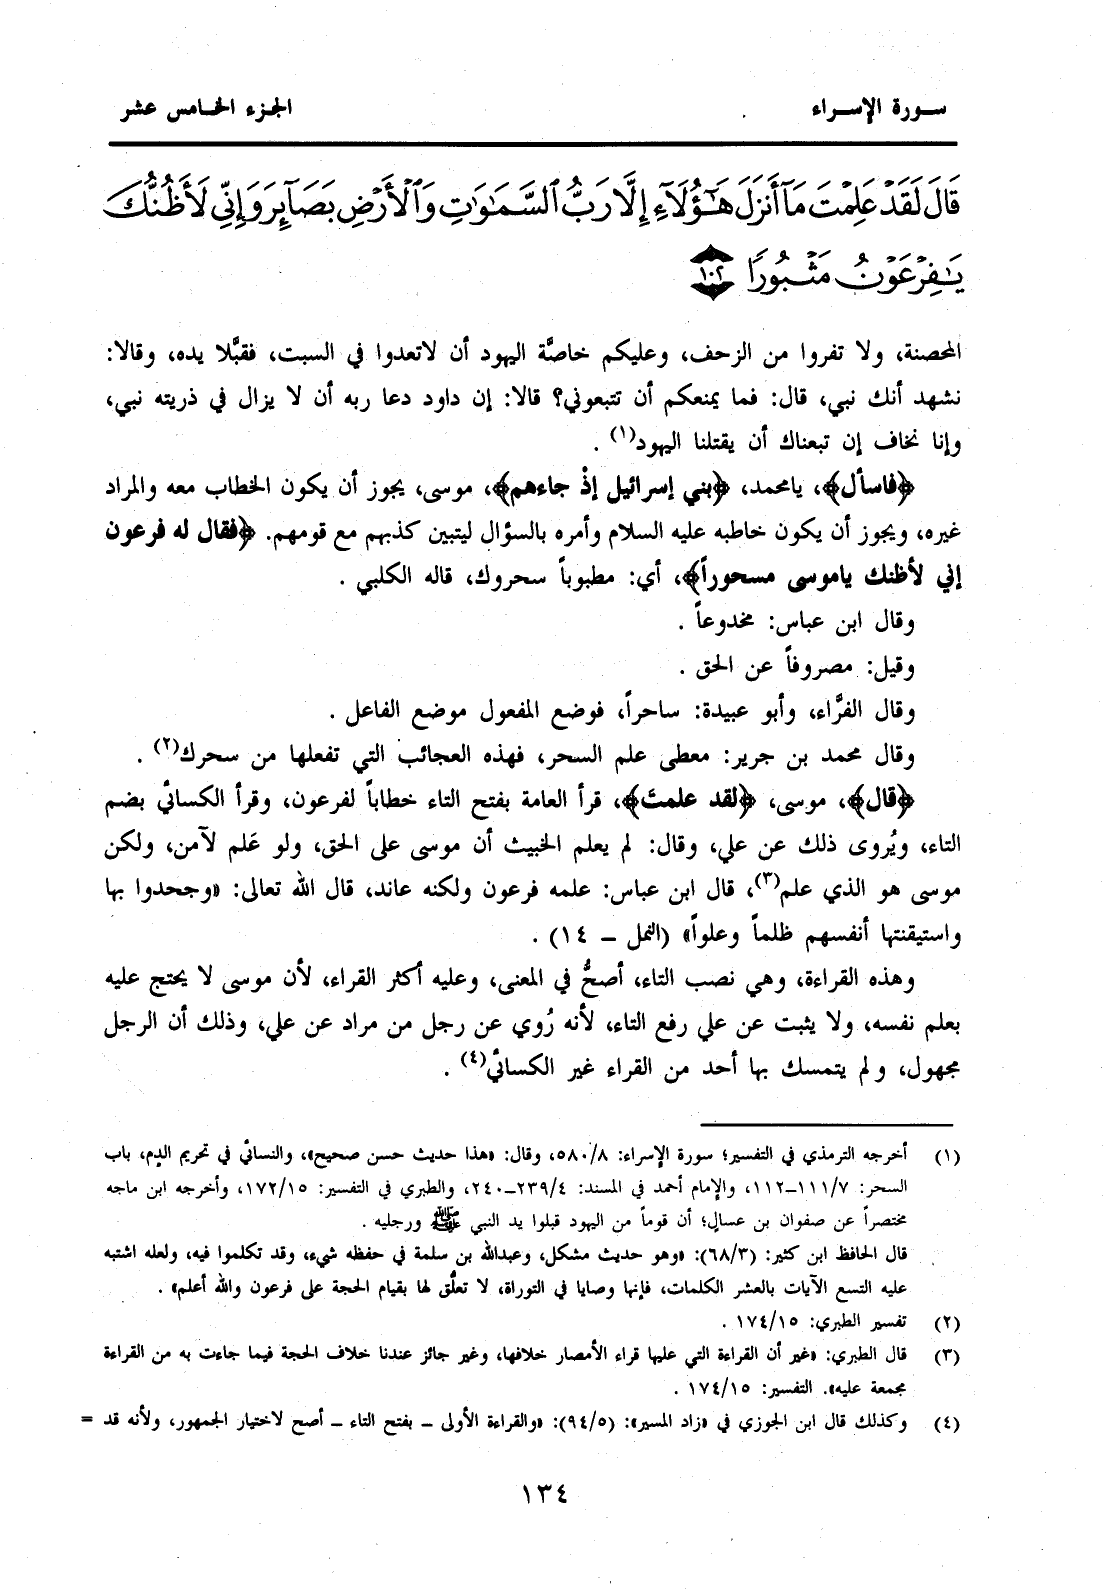 سورة الإسراء
الجزء الخامس عشر
قَالَ لَقَدْ عَلِمْتَ مَآ أَنزَلَ هَٰٓؤُلَآءِ إِلَّا رَبُّ ٱلسَّمَٰوَٰتِ وَٱلْأَرْضِ بَصَآئِرَ وَإِنِّى لَأَظُنُّكَ
يَٰفِرْعَوْنُ مَثْبُورًا ١٠٢
المحصنة، ولا تفروا من الزحف، وعليكم خاصَّة اليهود أن لاتعدوا في السبت، فقبَّلا يده، وقالا:
نشهد أنك نبي، قال: فما يمنعكم أن تتبعوني؟ قالا: إن داود دعا ربه أن لا يزال في ذريته نبي،
وإنا نخاف إن تبعناك أن يقتلنا اليهود(١) .
﴿فاسأل﴾، يامحمد، ﴿بني إسرائيل إذْ جاءهم﴾، موسى، يجوز أن يكون الخطاب معه والمراد
غيره، ويجوز أن يكون خاطبه عليه السلام وأمره بالسؤال ليتبين كذبهم مع قومهم. ﴿فقال له فرعون
إني لأظنك ياموسى مسحوراً﴾، أي: مطبوباً سحروك، قاله الكلبي .
وقال ابن عباس: مخدوعاً .
وقيل: مصروفاً عن الحق .
وقال الفرَّاء، وأبو عبيدة: ساحراً، فوضع المفعول موضع الفاعل .
وقال محمد بن جرير: معطى علم السحر، فهذه العجائب التي تفعلها من سحرك(٢) .
﴿قال﴾، موسى، ﴿لقد علمتَ﴾، قرأ العامة بفتح التاء خطاباً لفرعون، وقرأ الكسائي بضم
التاء، ويُروى ذلك عن علي، وقال: لم يعلم الخبيث أن موسى على الحق، ولو عَلم لآمن، ولكن
موسى هو الذي علم(٣)، قال ابن عباس: علمه فرعون ولكنه عاند، قال الله تعالى: «وجحدوا بها
واستيقنتها أنفسهم ظلماً وعلواً» (النمل – ١٤) .
وهذه القراءة، وهي نصب التاء، أصحُّ في المعنى، وعليه أكثر القراء، لأن موسى لا يحتج عليه
بعلم نفسه، ولا يثبت عن علي رفع التاء، لأنه رُوي عن رجل من مراد عن علي، وذلك أن الرجل
مجهول، ولم يتمسك بها أحد من القراء غير الكسائي(٤) .
(١) أخرجه الترمذي في التفسير؛ سورة الإسراء: ٥٨٠/٨، وقال: «هذا حديث حسن صحيح»، والنسائي في تحريم الدم، باب
السحر: ١١١/٧–١١٢، والإمام أحمد في المسند: ٢٣٩/٤–٢٤٠، والطبري في التفسير: ١٧٢/١٥، وأخرجه ابن ماجه
مختصراً عن صفوان بن عسال؛ أن قوماً من اليهود قبلوا يد النبي ﷺ ورجليه .
قال الحافظ ابن كثير: (٦٨/٣): «وهو حديث مشكل، وعبدالله بن سلمة في حفظه شيء، وقد تكلموا فيه، ولعله اشتبه
عليه التسع الآيات بالعشر الكلمات، فإنها وصايا في التوراة، لا تعلُّق لها بقيام الحجة على فرعون والله أعلم» .
(٢) تفسير الطبري: ١٧٤/١٥ .
(٣) قال الطبري: «غير أن القراءة التي عليها قراء الأمصار خلافها، وغير جائز عندنا خلاف الحجة فيما جاءت به من القراءة
مجمعة عليه». التفسير: ١٧٤/١٥ .
(٤) وكذلك قال ابن الجوزي في «زاد المسير»: (٩٤/٥): «والقراءة الأولى – بفتح التاء – أصح لاختيار الجمهور، ولأنه قد =
١٣٤